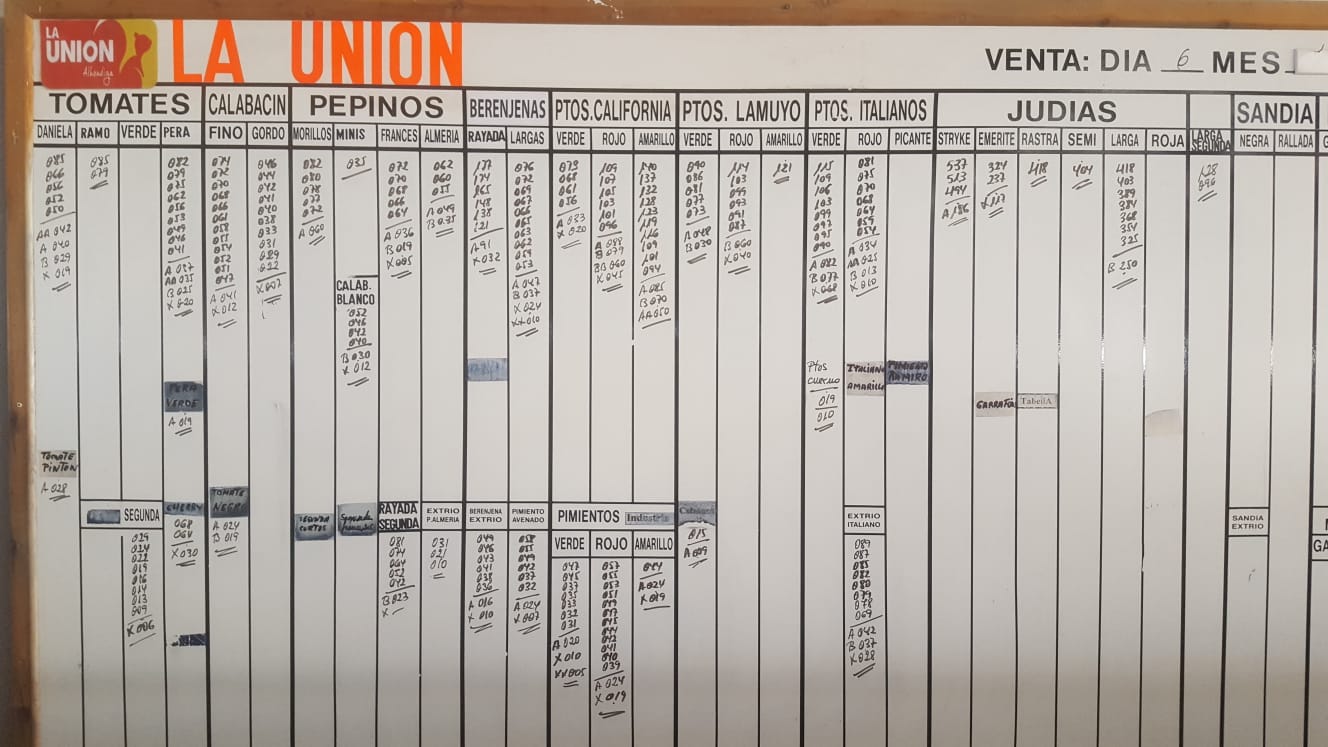 LA
UNION
Alhóndiga
LA UNION
VENTA: DIA 6 MES
TOMATES
CALABACIN
PEPINOS
BERENJENAS
PTOS.CALIFORNIA
PTOS. LAMUYO
PTOS. ITALIANOS
JUDIAS
SANDIA
DANIELA
085
066
056
052
050
AA 042
A 040
B 029
X 019
TOMATE
PINTON
A 028
RAMO
085
079
VERDE
SEGUNDA
029
024
022
019
016
014
013
009
X 006
PERA
082
079
075
062
056
053
049
046
041
A 037
AA 035
B 025
X 020
PERA
VERDE
A 019
CHERRY
068
064
X 030
FINO
074
072
070
068
066
061
058
055
054
052
051
047
A 041
X 012
TOMATE
NEGRO
A 024
B 019
GORDO
046
044
042
041
040
038
033
031
029
022
X 007
MORILLOS
082
080
078
077
072
A 060
MINIS
035
CALAB.
BLANCO
052
046
042
040
B 030
X 012
FRANCES
072
070
068
066
064
A 036
B 019
X 005
RAYADA
SEGUNDA
081
074
064
052
042
B 023
X
ALMERIA
062
060
055
A 049
B 035
EXTRIO
P.ALMERIA
031
021
010
RAYADA
177
174
165
148
138
121
A 91
X 032
BERENJENA
EXTRIO
049
046
043
041
038
036
A 016
X 010
LARGAS
076
072
069
067
066
065
063
062
059
053
A 047
B 037
X 024
XX 010
PIMIENTO
AVENADO
058
055
049
042
037
032
A 024
X 007
VERDE
073
068
061
056
A 033
X 020
ROJO
109
107
105
103
101
096
A 088
B 079
BB 060
X 045
AMARILLO
140
137
132
128
123
119
116
109
101
094
A 085
B 070
AA 050
PIMIENTOS
Industria
VERDE
047
045
037
035
033
032
031
A 020
X 010
XX 005
ROJO
057
055
053
051
049
047
045
044
042
041
040
039
A 024
X 019
AMARILLO
044
A 024
X 019
VERDE
090
086
081
077
073
A 048
B 030
015
A 009
ROJO
114
103
099
093
091
087
B 060
X 040
AMARILLO
121
VERDE
115
109
106
103
099
097
095
090
A 082
B 077
X 068
Ptos
cuerno
019
010
ROJO
081
075
070
068
064
059
054
A 034
AA 025
B 013
X 010
ITALIANO
AMARILLO
EXTRIO
ITALIANO
089
087
085
082
080
079
078
069
A 042
B 037
X 028
PICANTE
PIMIENTO
RAMIRO
STRYKE
537
513
494
A 186
EMERITE
324
237
X 117
GARRAFON
RASTRA
418
TabellA
SEMI
404
LARGA
418
403
389
384
368
354
325
B 250
ROJA
LARGA
SEGUNDA
128
096
NEGRA
SANDIA
EXTRIO
RALLADA
GA